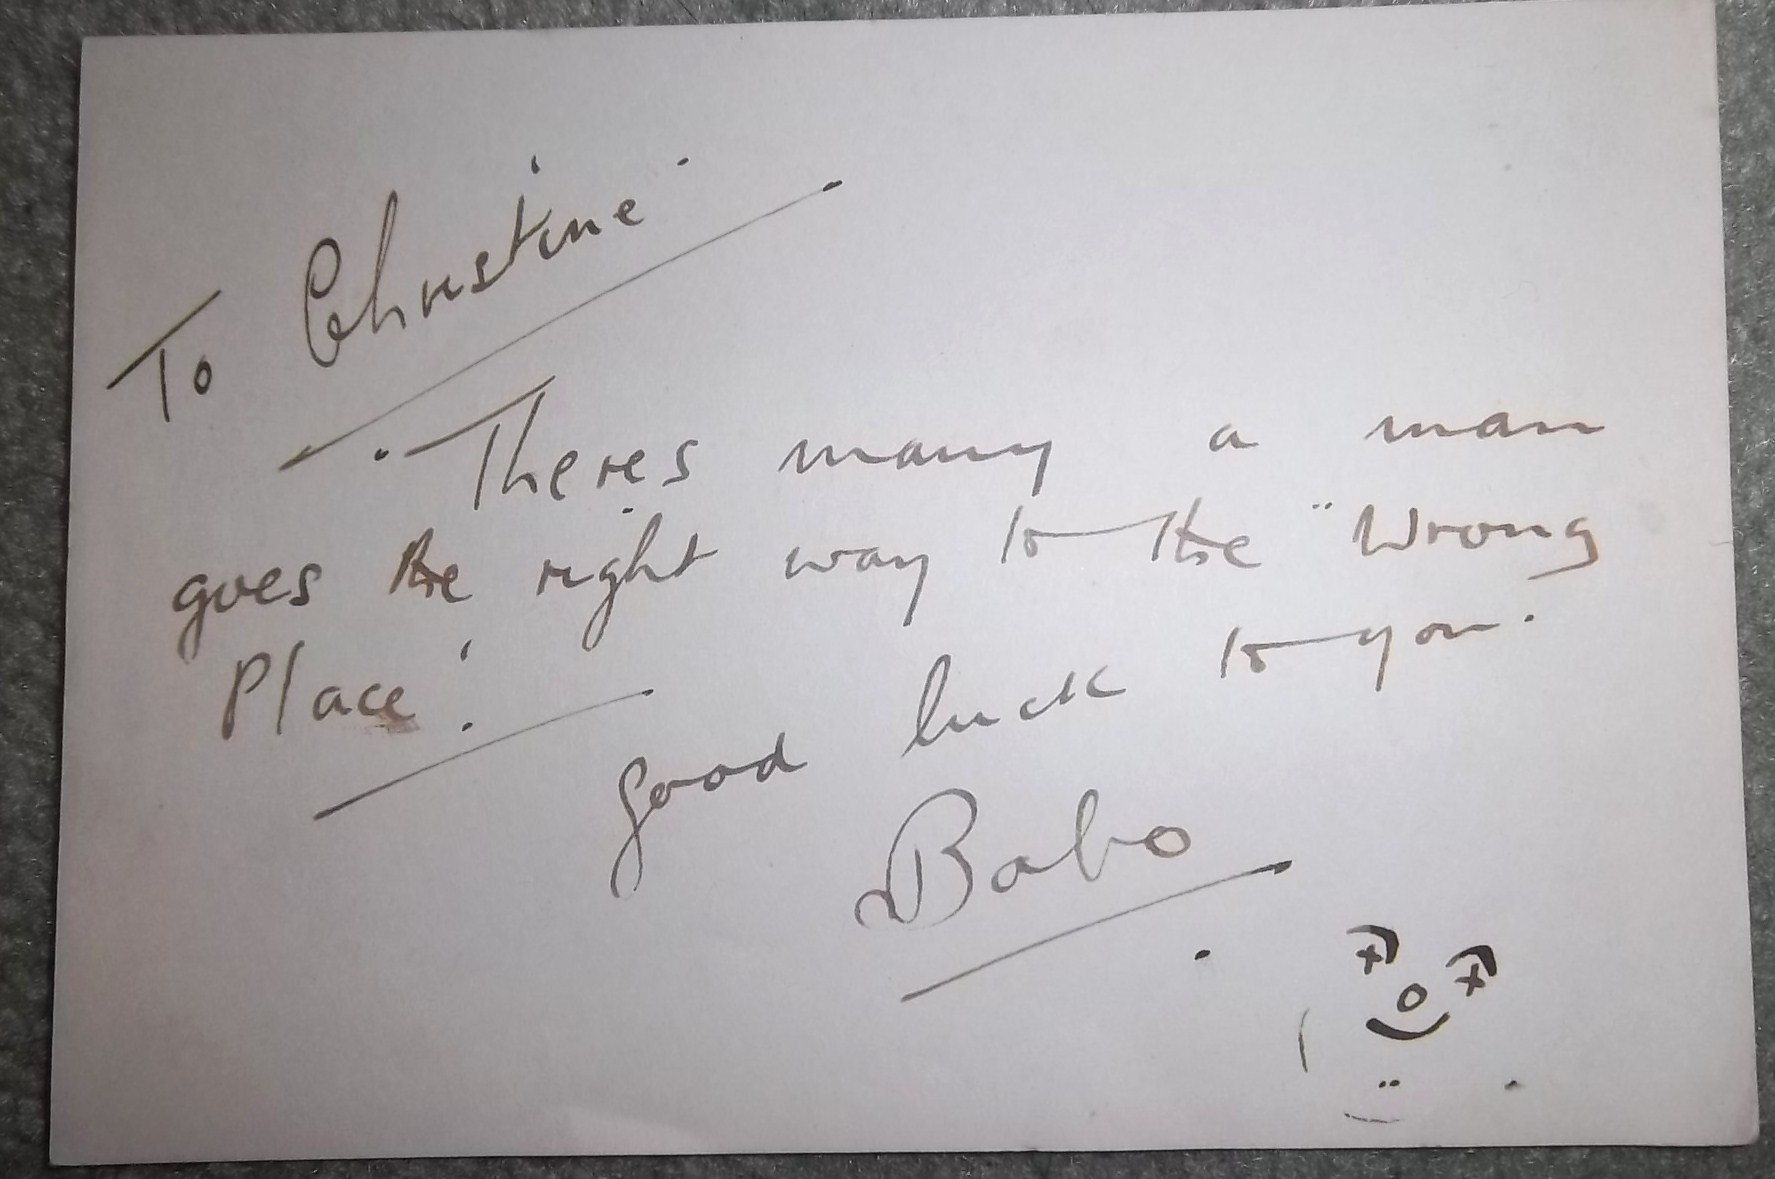 To Christine
Theres many a man
goes the right way to the "Wrong
Place!
Good luck to you.
Babo